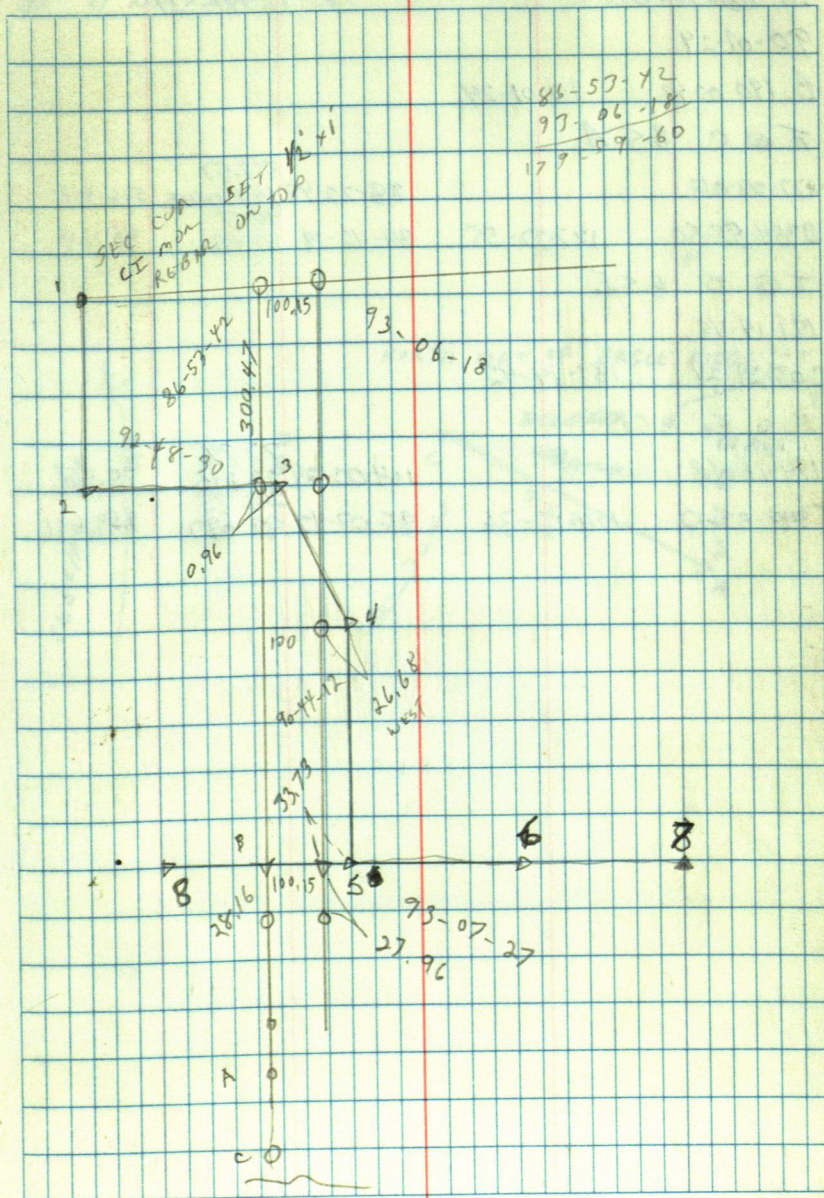 86-53-42
93-06-18
179-59-60
SEC COR SET 1/2" x 1'
CI MON
REBAR ON TOP
1
100.15
93-06-18
86-53-42
300.47
92-48-30
2
3
0.96
4
100
90-44-12
26.68
WEST
33.73
B
6
7
8
100.15
5
28.16
93-07-27
27.96
A
C